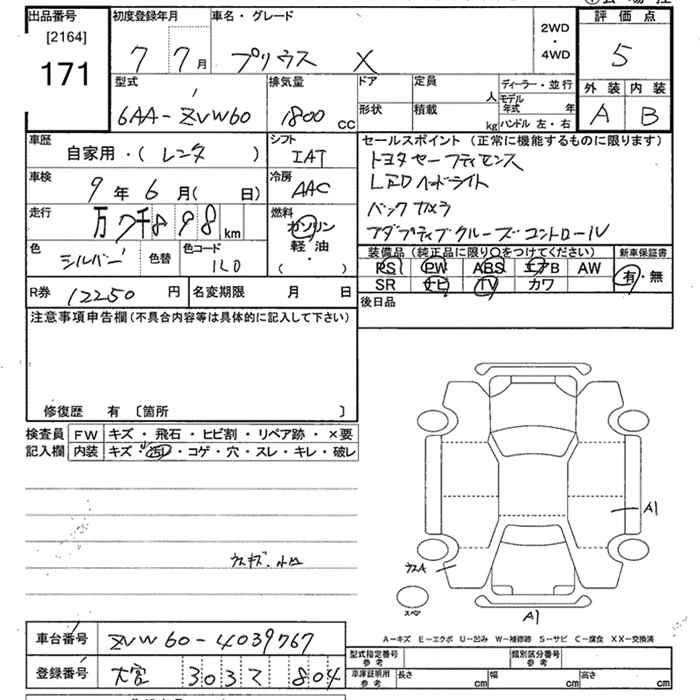 出品番号 初度登録年月 車名・グレード 評価点
[2164]
171 7 7月 プリウス X 2WD・4WD 5
型式 排気量 ドア 定員 人 ディーラー・並行 外装 内装
6AA-ZVW60 1800 cc 形状 積載 kg モデル年式 年 ハンドル 左・右 A B
車歴 自家用・(レンタ ) シフト IAT
車検 9年6月( 日) 冷房 AAC
走行 万7千898km 燃料 ガソリン 軽・油 ・( )
色 シルバー 色替 色コード 1L0
R券 12250 円 名変期限 月 日
セールスポイント(正常に機能するものに限ります)
トヨタセーフティセンス
LEDヘッドライト
バックカメラ
アダプティブクルーズコントロール
装備品(純正品に限り○をつけてください) 新車保証書
PS PW ABS エアB AW 有・無
SR ナビ TV カワ
後日品
注意事項申告欄(不具合内容等は具体的に記入して下さい)
修復歴 有 〔箇所 〕
検査員 FW キズ・飛石・ヒビ割・リペア跡・×要
記入欄 内装 キズ・汚レ・コゲ・穴・スレ・キレ・破レ
A1
ウスA
ウスキズ・小凹
スペア
A1
A-キズ E-エクボ U-凹み W-補修跡 S-サビ C-腐食 XX-交換済
車台番号 ZVW60-4039767
登録番号 大宮 303 ス 804
型式指定番号 参考 類別区分番号 参考
車庫証明用 参考 長さ cm 幅 cm 高さ cm